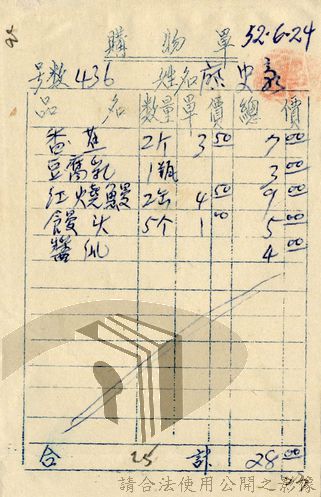 購物單 52-6-24
号数 436 姓名 史
品名 数量 單價 總價
香 2个 3 50 7 00
豆腐乳 1瓶 3 00
紅燒鰻 2缶 4 50 9 00
饅头 5个 1 00 5 00
醬瓜 4 00
合 25 計 28 00
請合法使用公開之影像